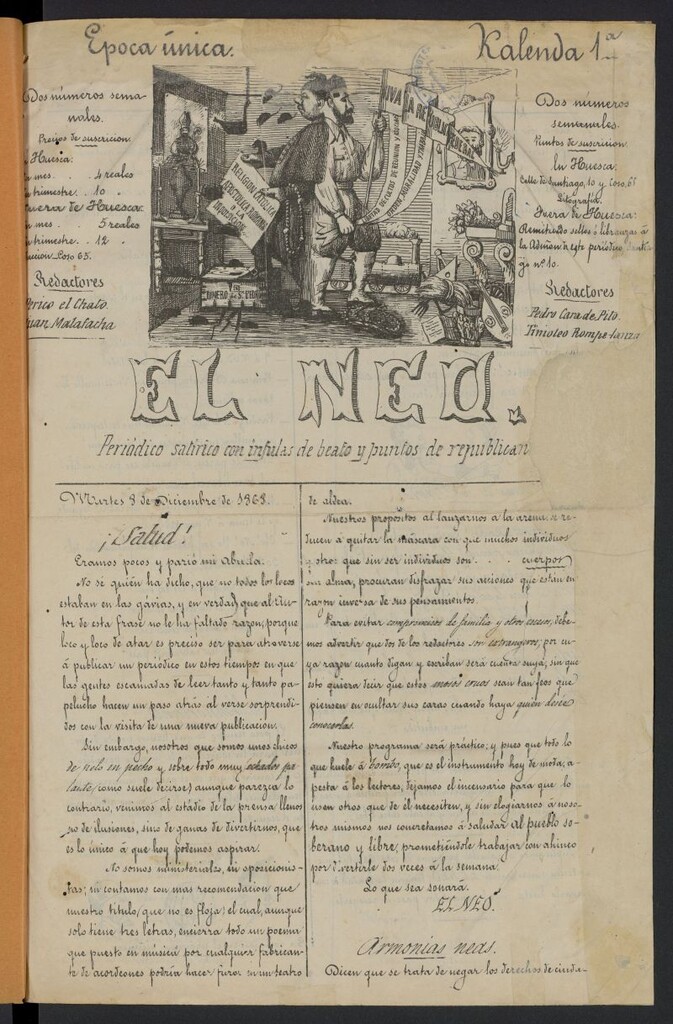 Epoca única.
Kalenda 1ª
Dos números sema-
nales.
Precios de suscricion
Huesca.
mes. . 4 reales
trimestre. 10 .
Fuera de Huesca.
mes. . 5 reales
trimestre. 12 .
Coso 65.
Redactores
Perico el Chato.
Juan Matafacha
RELIGION CATÓLICA
LA
INQUISICION
DINERO DE Sn
VIVA LA REPUBLICA FEDERAL
Dos números
semanales.
Puntos de suscricion.
En Huesca:
Calle de Santiago, 10 y Coso, 65
Litografía.
Fuera de Huesca:
Remitiendo sellos ó libranzas á
la Admon de este periódico
go nº 10.
Redactores
Pedro Cara de Pito.
Timoteo Rompe-lanza
EL NEO.
Periódico satírico con ínfulas de beato y puntos de republican
Martes 8 de Diciembre de 1868.
¡Salud!
Eramos pocos y parió mi abuela.
No sé quién ha dicho, que no todos los locos
estaban en las gávias, y en verdad que al Auc-
tor de esta frase no le ha faltado razon; porque
loco y loco de atar es preciso ser para atreverse
á publicar un periódico en estos tiempos en que
las gentes escamadas de leer tanto y tanto pa-
pelucho hacen un paso atrás al verse sorprendi-
dos con la visita de una nueva publicacion.
Sin embargo, nosotros que somos unos chicos
de pelo en pecho y sobre todo muy echados pa
lante, (como suele decirse) aunque parezca lo
contrario, venimos al estádio de la prensa llenos
no de ilusiones, sino de ganas de divertirnos, que
es lo único á que hoy podemos aspirar.
No somos ministeriales, ni oposicionis-
tas; ni contamos con mas recomendacion que
nuestro título, (que no es floja) el cual, aunque
solo tiene tres letras, encierra todo un poema
que puesto en música por cualquier fabrican-
te de acordeones podría hacer furor en un teatro
de aldea.
Nuestros propósitos al lanzarnos á la arena se re-
ducen á quitar la máscara con que muchos individuos
y otros que sin ser individuos son. . . cuerpos
sin alma, procuran disfrazar sus acciones que están en
razon inversa de sus pensamientos.
Para evitar compromisos de familia y otros excesos, debe-
mos advertir que dos de los redactores son estrangeros, por cu-
ya razon cuanto digan y escriban será cuenta suya; sin que
esto quiera decir que estos mozos crudos sean tan feos que
piensen en ocultar sus caras cuando haya quién desee
conocerlas.
Nuestro programa será práctico; y pues que todo lo
que huele á bombo, que es el instrumento hoy de moda, a-
pesta á los lectores, dejamos el incensario para que lo
usen otros que de él necesiten, y sin elogiarnos á noso-
tros mismos nos concretamos á saludar al pueblo so-
berano y libre, prometiéndole trabajar con ahinco
por divertirle dos veces á la semana.
Lo que sea sonará.
EL NEO.
Armonías neas.
Dicen que se trata de negar los derechos de ciuda-